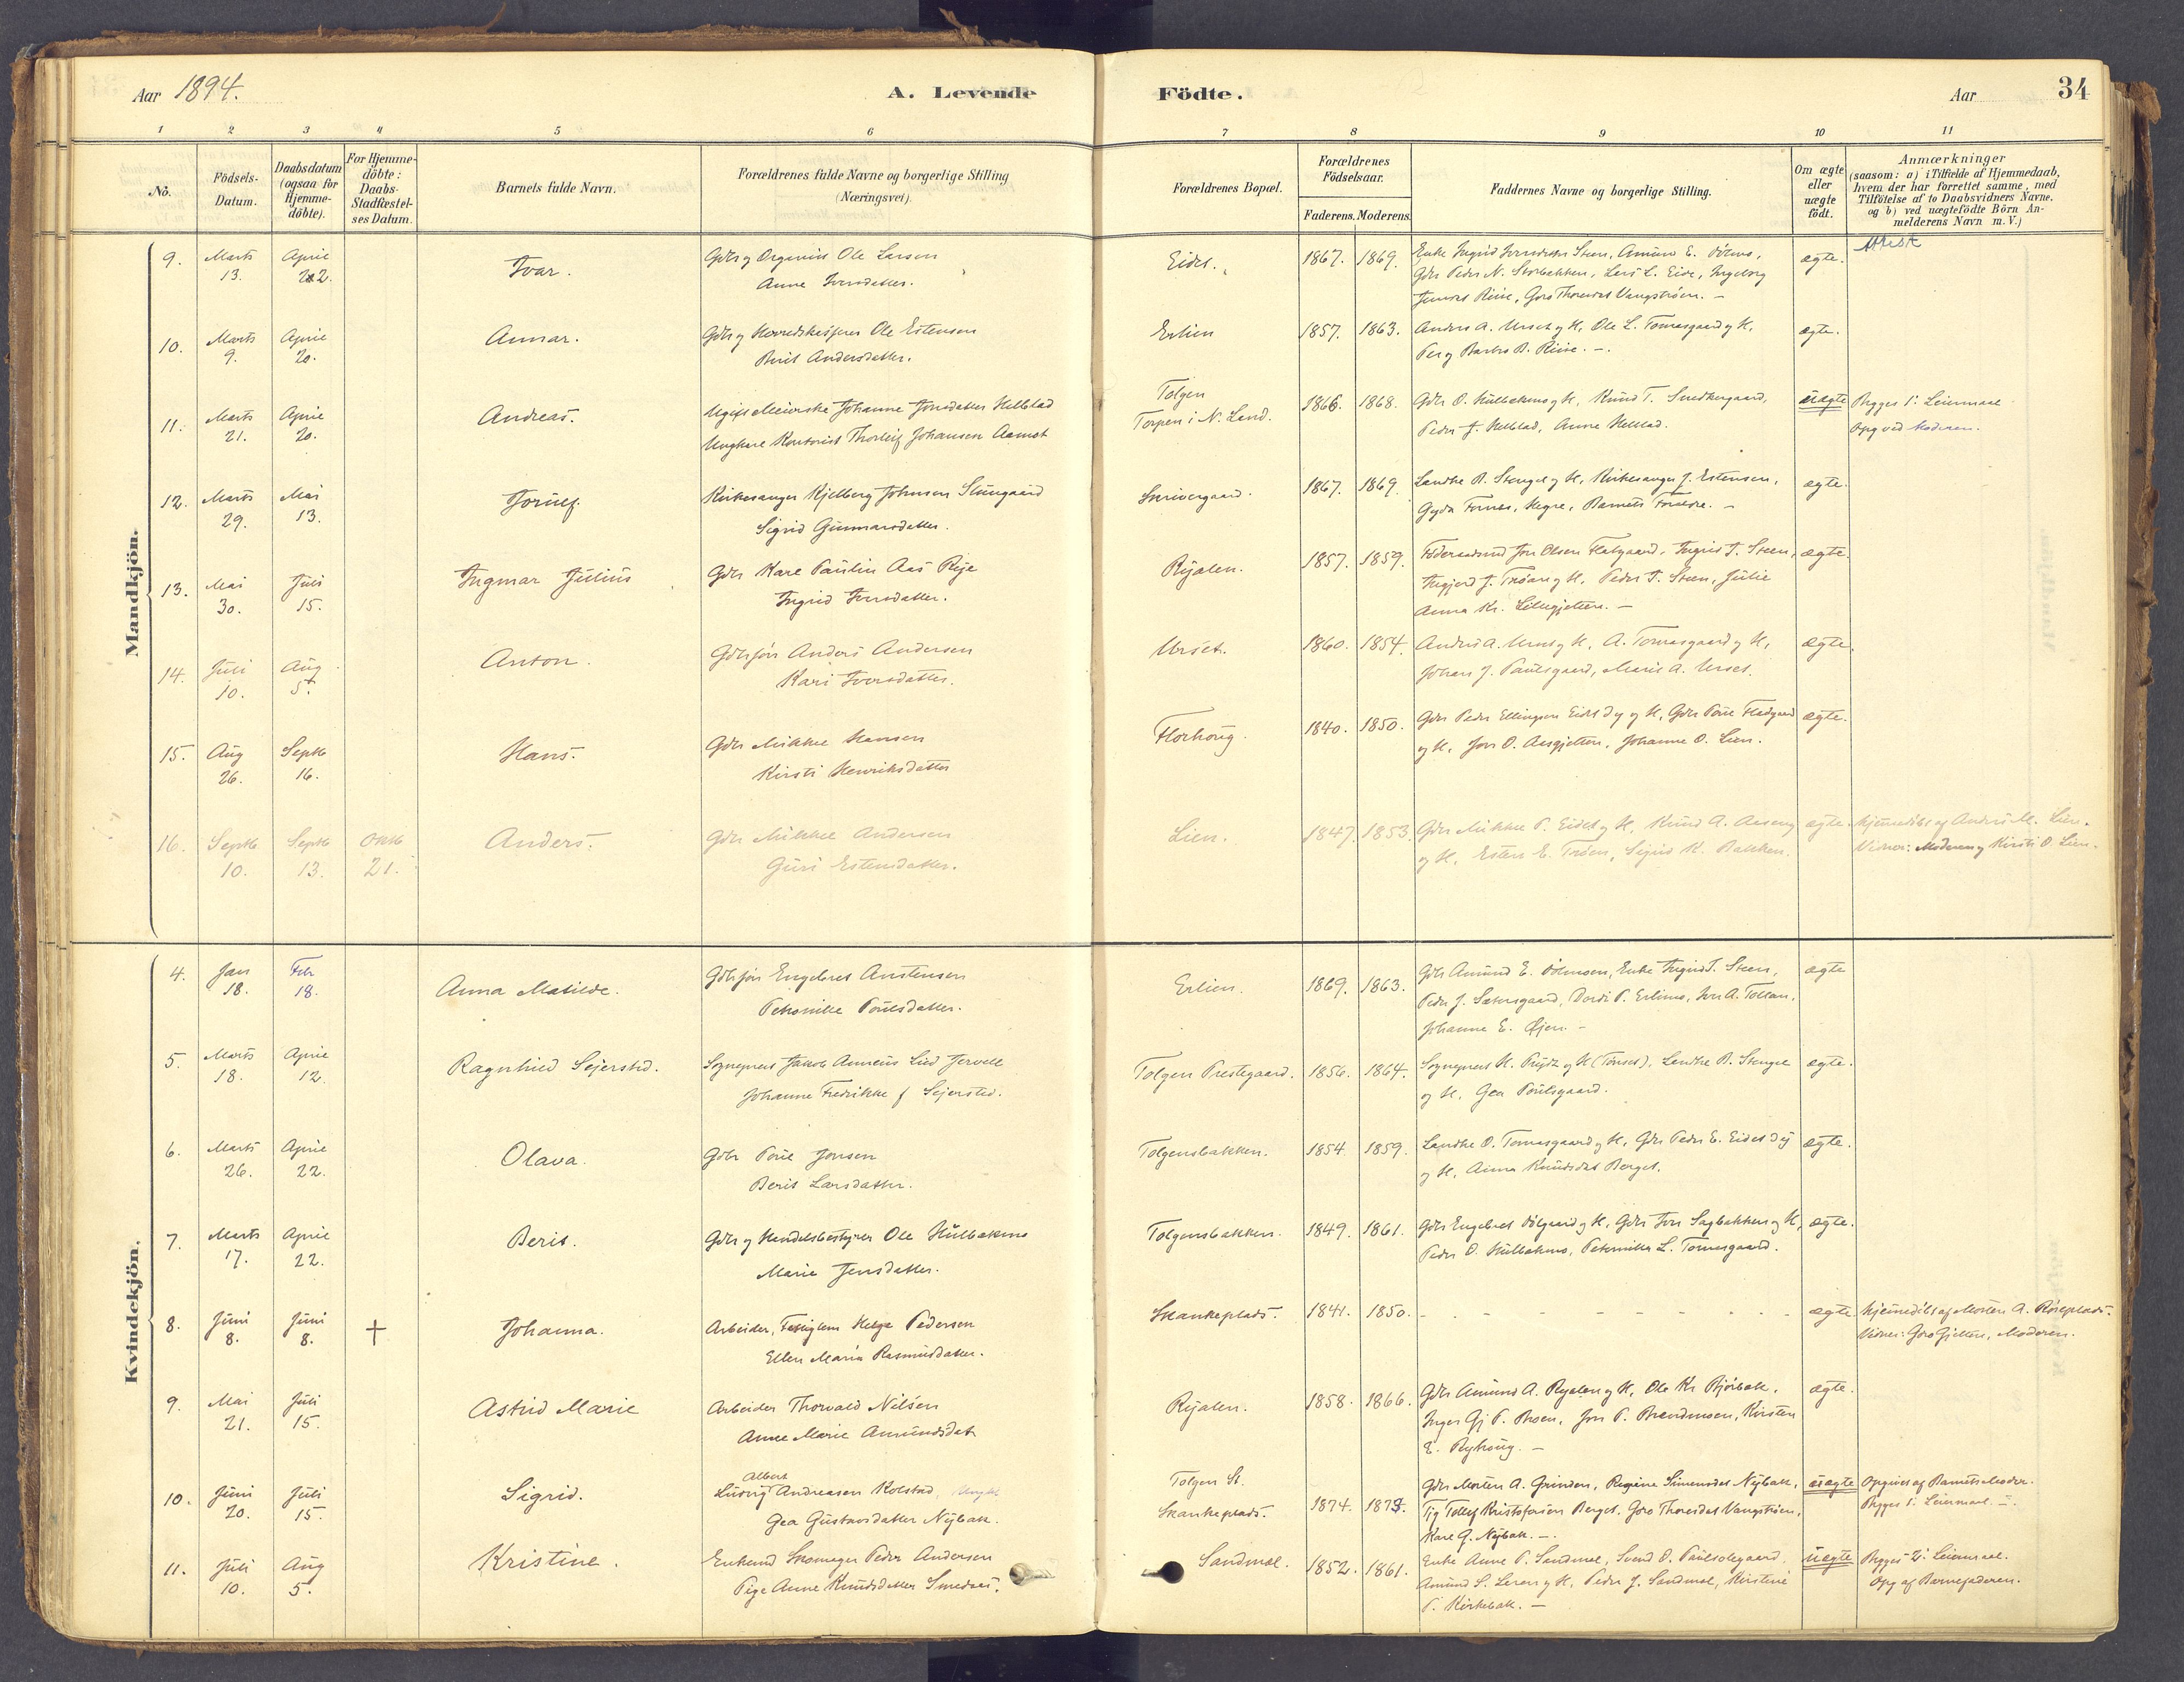 Aar 1894.
A. Levende
Födte.
Aar
34
1 2 3 4 5 6 7 8 9 10 11
No.
Födsels-
Datum.
Daabsdatum
(ogsaa for
Hjemme-
döbte).
For Hjemme-
döbte:
Daabs-
Stadfæstel-
ses Datum.
Barnets fulde Navn.
Forældrenes fulde Navne og borgerlige Stilling
(Næringsvei).
Forældrenes Bopæl.
Forældrenes
Födselsaar.
Faderens. Moderens.
Faddernes Navne og borgerlige Stilling.
Om ægte
eller
uægte
födt.
Anmærkninger
(saasom: a) i Tilfælde af Hjemmedaab,
hvem der har forrettet samme, med
Tilföielse af to Daabsvidners Navne.
og b) ved uægtefödte Börn An-
melderens Navn m. V.)
Mandkjön.
9. Marts 13. April 22. Ivar.
Gdbr og Organist Ole Larsen
Anne Iversdatter.
Eidet. 1867. 1869.
Gdbr Peder N. Storbakken, Lars L. Eide, Ingeborg
Goro Thoresdat Vangströen. -
ægte. Attest
10. Marts 9. April 20. Annar.
Gdbr og Herredskasserer Ole Estensen
Berit Andersdatter.
Erlien 1857. 1863.
Anders A. Urset og H, Ole L. Tomasgaard og H,
Per og Barbro B. Riise. -.
ægte.
11. Marts 21. April 20. Andreas.
Ugift Meierske Johanne Jonsdatter Helblad
Ungkarl Kontorist Thorleif Johansen Aamot
Tolgen
Torpen i N. Land.
1866. 1868.
Gdbr O. Hulbækmo og H, Knud T.
Peder J. Helblad, Anne Helblad.
uægte Begges 1' Leiermaal
Opg ved Moderen.
12. Marts 29. Mai 13. Torulf.
Kirkesanger Kjelberg Johnsen Stuegaard
Sigrid Gunnarsdatter.
Skrivergaard. 1867. 1869.
Landhr B. Stengel og H, Kirkesanger J. Estensen,
Gyda Hegre, Barnets Forældre. -
ægte.
13. Mai 30. Juli 15. Ingmar Julius
Gdbr Karl Paulin Aas Rije
Ingrid Iversdatter.
Ryalen. 1857. 1859.
Föderaadsmd Jon Olsen Flatgaard, Ingrid T. Steen,
Ingjerd J. Tröan og H, Peder T. Steen, Julie
Anna Kr. Lillegjelten. -
ægte.
14. Juli 10. Aug 5. Anton.
Gdbrsön Anders Andersen
Kari Iversdatter.
Urset. 1860. 1854.
Anders A. Urset og H, A. Tomasgaard og H,
Johan J. Paulsgaard, Marit A. Urset.
ægte.
15. Aug 26. Septb 16. Hans.
Gdbr Mikkel Hansen
Kirsti Henriksdatter
Florhoug. 1840. 1850.
Gdbr Peder Ellingsen Eidet dy og H, Gdbr Poul Fladgaard
og H, Jon O. Aasgjelten, Johanne O. Lien.
ægte.
16. Septb 10. Septb 13. Oktb 21. Anders.
Gdbr Mikkel Andersen
Guri Estensdatter.
Lien. 1847. 1853.
Gdbr Mikkel P. Eidet og H, Knud A. Aaseng
og H, Esten E. Tröen, Sigrid K. Bakken.
ægte. Hjemmedöbt af Anders M. Lien.
Vidner: Moderen og Kirsti O. Lien.
Kvindekjön.
4. Jan 18. Feb 18. Anna Matilde.
Gdbrsön Engebret Austensen
Petronille Poulsdatter.
Erlien. 1869. 1863.
Gdbr Amund E. Enke Ingrid T. Steen,
Peder J. Sætersgaard, Dordi P. Erlimo, Iver A. Tollan,
Johanne E. Öien. -
ægte
5. Marts 18. April 12. Ragnhild Sejersted.
Sogneprest Jakob Anneus Lied Jervell
Johanne Fredrikke f Sejersted.
Tolgen Prestegaard. 1856. 1864.
Sogneprest H. Prydz og H (Tönset). Landhr B. Stengel
og H, Gea Poulsgaard.
ægte.
6. Marts 26. April 22. Olava.
Gdbr Poul Jonsen
Berit Larsdatter.
Tolgensbakken. 1854. 1859.
Landhr O. Tomasgaard og H, Gdbr Peder E. Eidet dy
og H, Anna Knudsdat Berget.
ægte.
7. Marts 17. April 22. Berit.
Gdbr og Handelsbestyrer Ole Hulbækmo
Marie Jensdatter.
Tolgensbakken. 1849. 1861.
Gdbr Engebret og H, Gdbr Iver Sagbakken og H,
Peder O. Hulbækmo, Petronille L. Tomasgaard.
ægte.
8. Juni 8. Juni 8. † Johanna.
Arbeider, Fattiglem Helge Pedersen
Ellen Maria Rasmusdatter.
Skankeplads. 1841. 1850. - - - - - - -
ægte. Hjemmedöbt af Morten A. Röseplads.
Vidner: Goro Gjelten, Moderen.
9. Mai 21. Juli 15. Astrid Marie
Arbeider Thorvald Nilsen
Anne Marie Amundsdat
Ryalen. 1858. 1866.
Gdbr Amund A. Ryalen og H, Ole Kr. Björbæk,
Inger Gj P. Moen, Jon P. Brændmoen, Kirsten
E. Ryhoug. -
ægte.
10. Juni 20. Juli 15. Sigrid.
Albert
Ludvig Andreasen Kolstad, Ungk.
Gea Gustavsdatter Nybak.
Tolgen St.
Skankeplads.
1874. 1873.
Gdbr Morten A. Grinden, Regine Simensdat Nybak,
Tollef Kristofersen Berget, Goro Thoresdat Vangströen,
Karl G. Nybak. -.
uægte Opgivet af Barnets Moder.
Begges 1' Leiermaal. -
11. Juli 10. Aug 5. Kristine.
Enkemd Skomager Peder Andersen
Pige Anne Knudsdatter Smedaas.
Sandmæl. 1852. 1861.
Enke Anne P. Sandmæl, Svend O. Paulsølegaard,
Amund S. Leren og H, Peder J. Sandmæl, Kirstine
P. Kirkebak. -
uægte Begges 2' Leiermaal.
Opg af Barnefaderen.